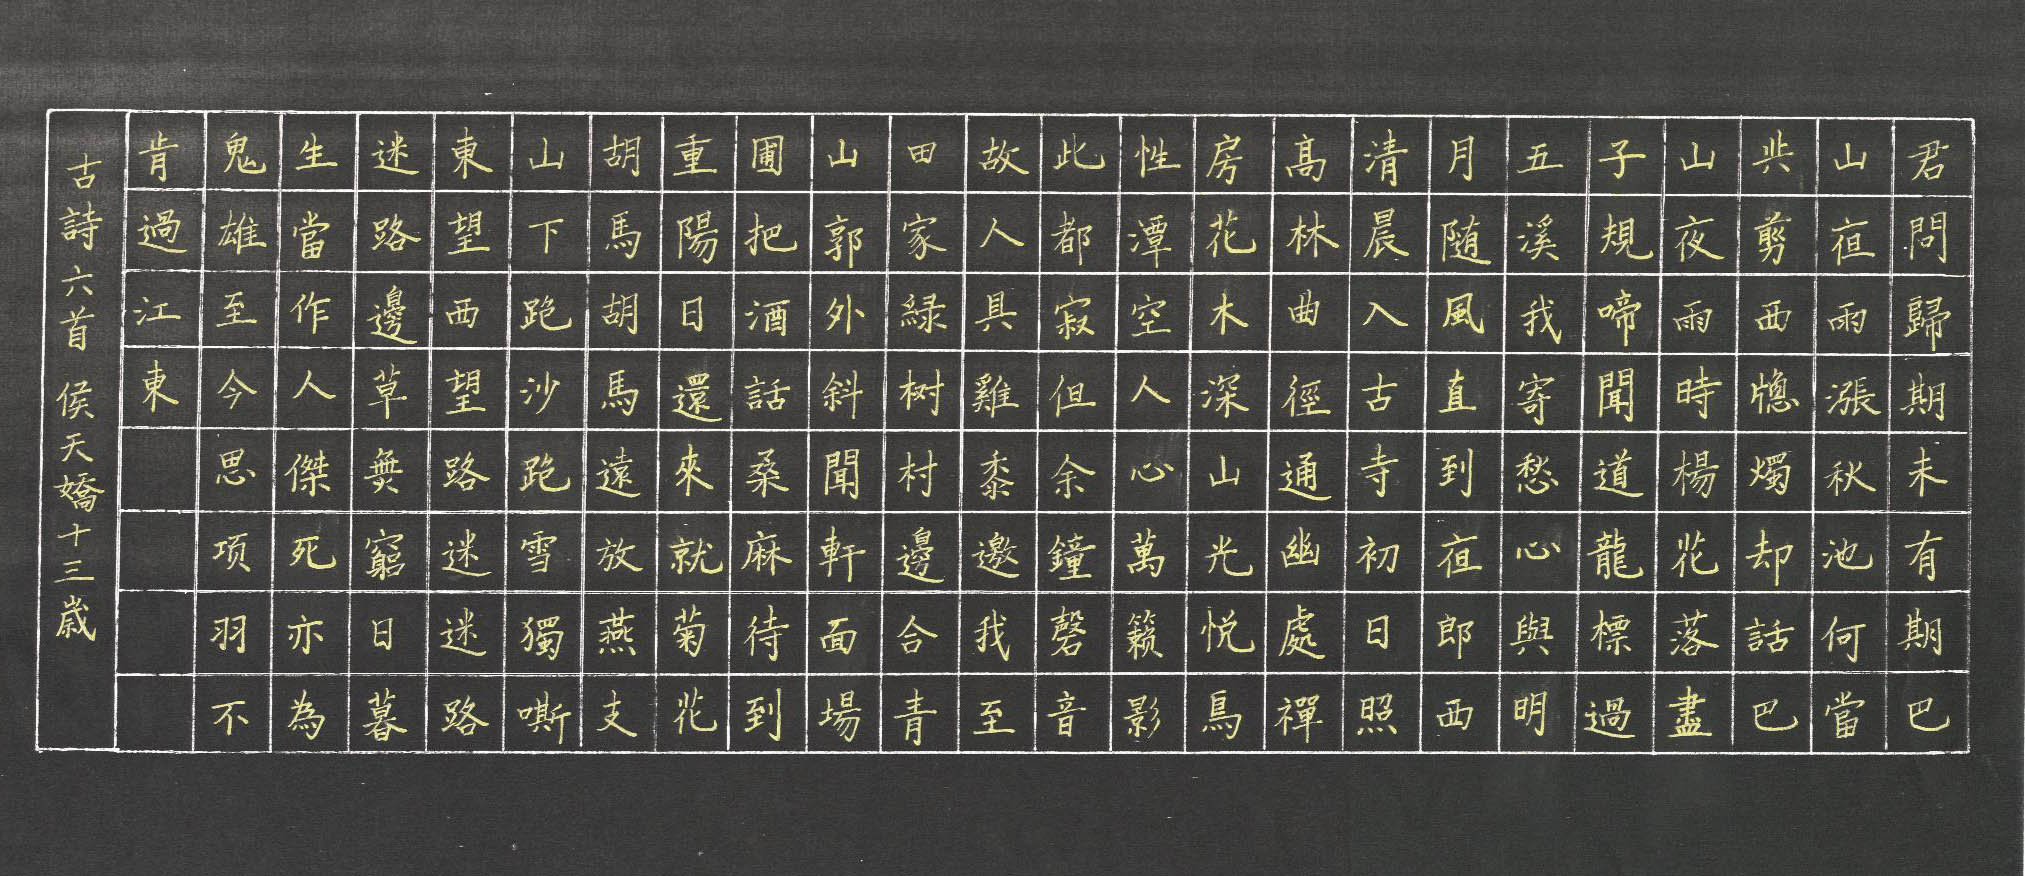 君問歸期未有期巴
山亱雨漲秋池何當
共剪西牕燭却話巴
山夜雨時楊花落盡
子規啼聞道龍標過
五溪我寄愁心與明
月随風直到亱郎西
清晨入古寺初日照
髙林曲徑通幽處禪
房花木深山光悦鳥
性潭空人心萬籟影
此都寂但余鐘磬音
故人具雞黍邀我至
田家緑树村邊合青
山郭外斜聞軒面場
圃把酒話桑麻待到
重陽日還來就菊花
胡馬胡馬遠放燕支
山下跑沙跑雪獨嘶
東望西望路迷迷路
迷路邊草無窮日暮
生當作人傑死亦為
鬼雄至今思项羽不
肯過江東
古詩六首 侯天嬌十三歲